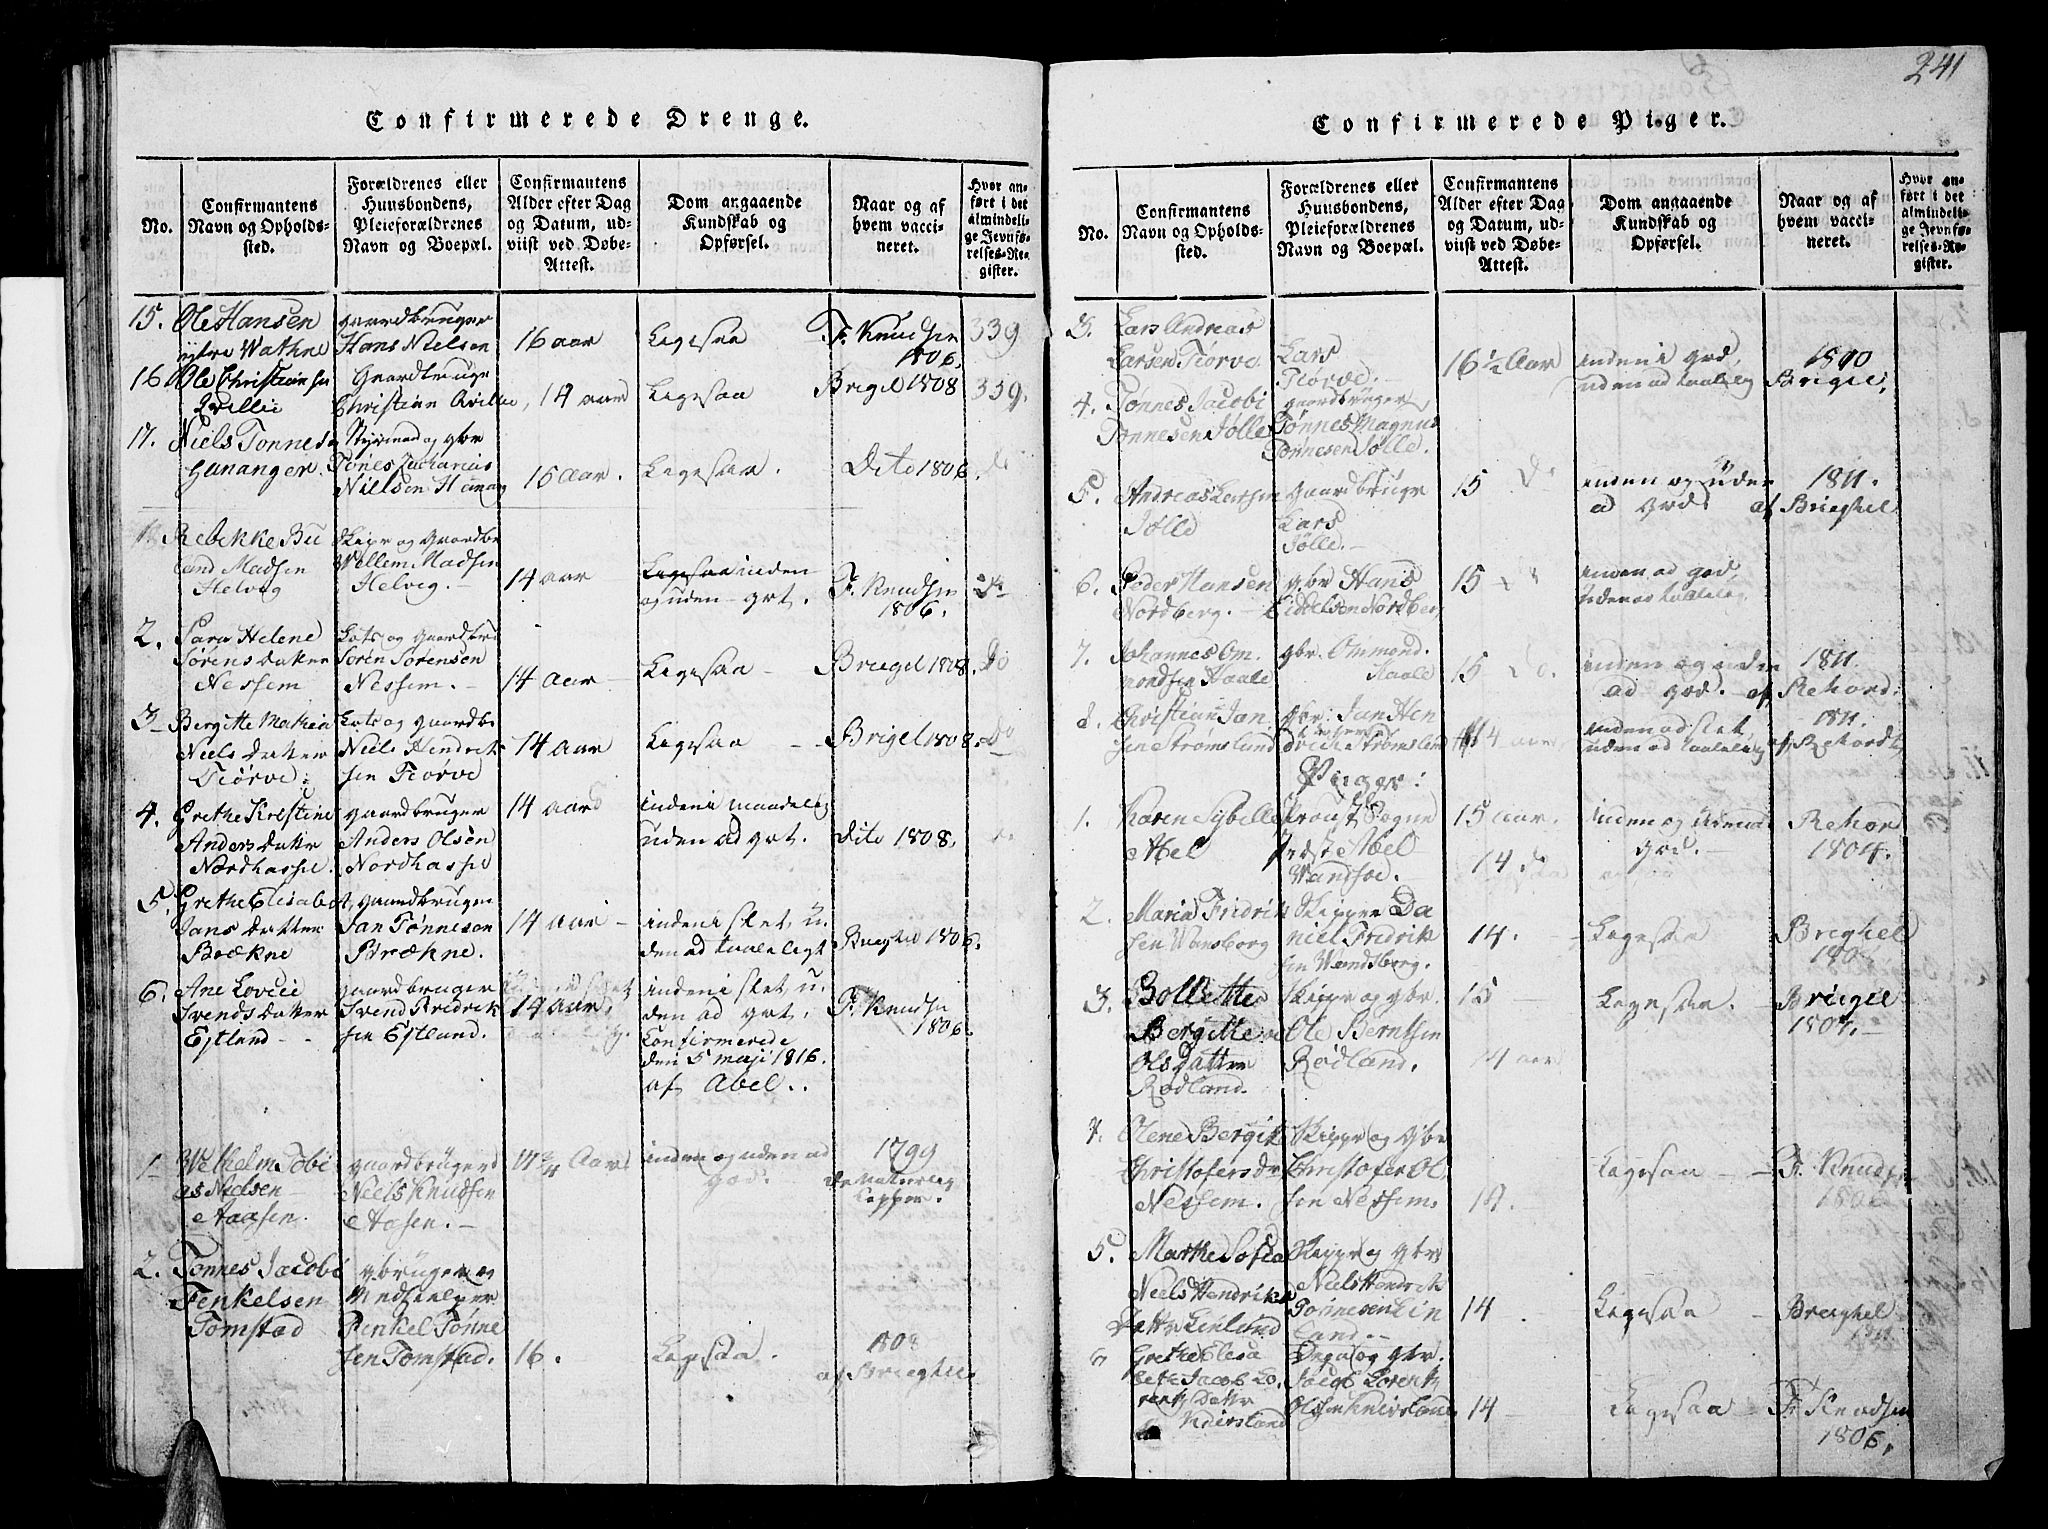 241
Confirmerede Drenge.
No.
Confirmantens
Navn og Opholds-
sted.
Forældrenes eller
Huusbondens,
Pleieforældrenes
Navn og Boepæl.
Confirmantens
Alder efter Dag
og Datum, ud-
viist ved Døbe-
Attest.
Dom angaaende
Kundskab og
Opførsel.
Naar og af
hvem vacci-
neret.
Hvor an-
ført i det
almindeli-
ge Jevnfø-
relses-Re-
gister.
15. Ole Hansen
ytre Wathne
gaardbruger
Hans Nielsen
16 aar
Ligesaa
F. Knudsen
1806.
339
16 Ole Christiansen
Qvillii
Gaardbruge
Christian Qvillie,
14 aar
Ligesaa
Brigel 1808
339.
17. Niels Tonnesen
Hananger.
Styrmad og gbr
Tones Zacharias
Nillsen Hanang
15 Aar.
Ligesaa.
Dito 1806.
do
1. Rebekke Bu
Madsen
Helvig
Skipr og Gaardbr
Wellem Madsen
Helvig.
14 aar
Ligesaa inden
og uden grt.
F. Knudsen
1806.
Do
2. Sara Helene
Sørens datter
Nessem
Lots og Gaardbr
Soren Sørensen
Nessem.
14 aar
Ligesaa
Briegel 1808.
Do
3 Bergitte Mathia
Niels datter
Tiørve
Lots og gaardbr
Niels Hendrik
sen Tiørve
14 aar
Ligesaa
Brigel 1808.
Do
4. Grethe Kristine
Anders datter
Nordhassel.
gaardbruger
Anders Olsen
Nordhassel
14 aar
inden i maadelig
uden ad grt.
Dito 1808.
do
5. Grethe Elisabet
Jans datter
Brækne
gaardbruger
Jan Tønnesen
Brækne.
14 aar
inden i slet u.
den ad taaleligt
Brighel 1806.
6. Ane Lovise
Svends datter
Estland
gaardbruger
Svend Fredrik
sen Estland.
14 aar
inden i slet u.
den ad grt.
Confirmerede
den 5 maji 1816.
af Abel.
F. Knudsen
1806.
1 Wilhelm Tobi
as Nielsen
Aaasen.
gaardbrugers
Niels Knudsen
Aasen.
Aar
inden og uden ad
god.
1799
de naturlig
Kopper.
2. Tonnes Jacob
Tenkelsen
Tomstad
gbruger og
Medhielper
Tenkel Tønne
sen Tomstad.
16.
Ligesaa.
1808
af Brieghel.
Confirmerede Piger.
No.
Confirmantens
Navn og Opholds-
sted.
Forældrenes eller
Huusbondens,
Pleieforældrenes
Navn og Boepæl.
Confirmantens
Alder efter Dag
og Datum, ud-
viist ved Døbe-
Attest.
Dom angaaende
Kundskab og
Opførsel.
Naar og af
hvem vacci-
neret.
Hvor an-
ført i det
almindeli-
ge Jevnfø-
relses-Re-
gister.
3. Lars Andreas
Larsen Tiørve
Lars
Tiørve.
16 1/2 Aar
inden i god,
uden ad taalelig
1810
Brigel.
4. Tonnes Jacobi
Tonnesen Jølle
gaardbruger
Tønnes Magnus
Tønnesen Jølle.
5. Andreas Larsen
Jølle
gaardbruge
Lars
Jølle.
15 Do
inden og uden
ad god
1811.
af Brieghel
6. Peder Hansen
Nordberg.
gbr Hans
Nordberg
15
inden ad god,
uden ad taalelig.
7. Johannes Om
mondsen Haale
gbr. Ommond
Haale
15 Do.
inden og uden
ad god.
1811.
af Rekord.
8. Christian Jan
sen Strømsland
gbr: Jan Hen
drik Strømsland
14 aar
inden ad slet,
uden ad taalelig
1811.
af Rekord
Pieger:
1. Karen Sybille
Abel
Proust Sogne
Præst Abel
Wandsøe.
15 aar.
14 do
inden og uden ad
god.
Rekor
1804.
2. Maria Fridrik
sen Wansborg
Skipper Da
niel Fridrik
sen Wandsberg.
14.
Ligesaa
Brighel
3. Bollette
Bergitte
Olsdatter
Rødland.
Skippr og gbr.
Ole Berntsen
Rødland.
15
14 aar
Ligesaa.
Briegel
1807.
4. Olene Bergit
Christofersdr
Nessem.
Skippr og gbr
Christofer Ol
sen Nessem.
14.
Ligesaa
F. Knuds
1806
5. Marthe Sofia
Niels Hendriks
Dattr
Skippr og gbr
Niels Hendrik
Tonnesen Lin
land
14
Ligesaa
Breighel
6 Grethe Elisa
bete Jacob Lo
rentz Datter
Degn og gbr.
Jacob Lorentz
Olsen
14
Ligesaa
F. Knudsen
1806.